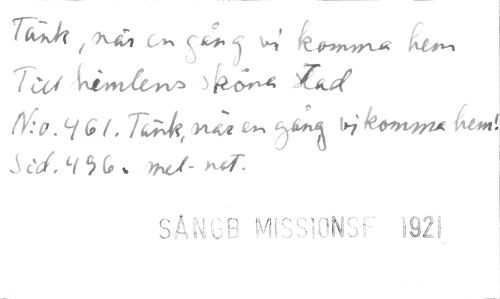 Tänk, när en gång vi komma hem
Till himlens sköna stad
N:o. 461. Tänk, när en gång vi komma hem!
Sid. 496. mel-not.
SÅNGB MISSIONSF 1921